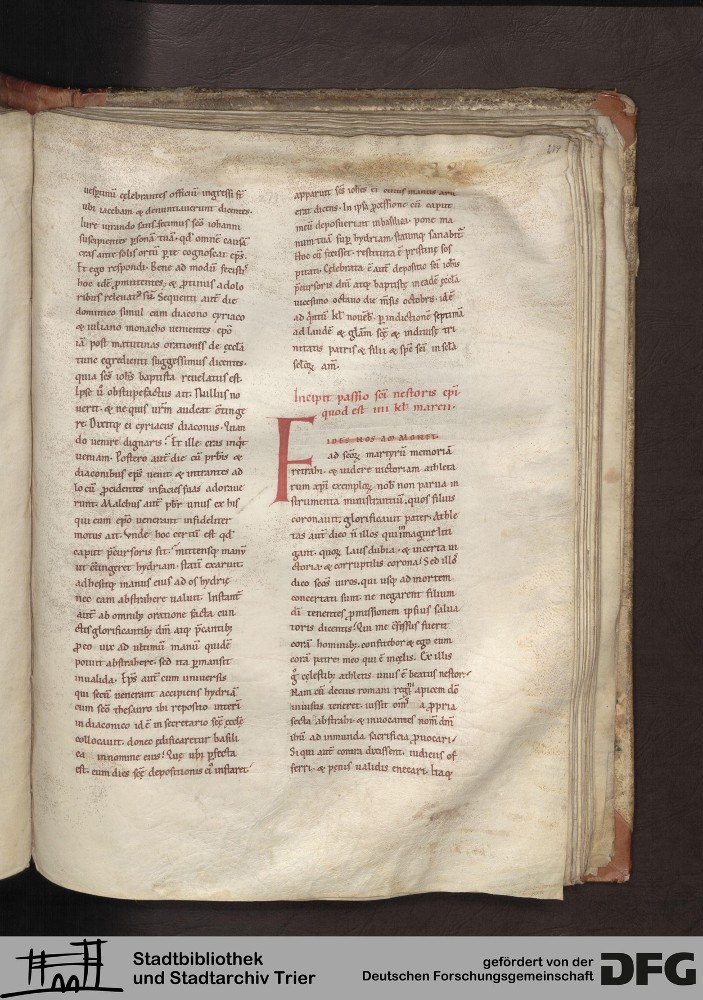 uespertinū celebrantes officiū ingressi st̄
ubi iacebam & denuntiauerunt dicentes.
Iure iurando satis fecimus sc̄o iohanni
susapientes ꝑsonā tuā. qd' omnē causā
ante solis ortū ꝑ te cognoscat ep̄s.
Et ego respondi. Bene ad modū fecistis
hoc idē ꝓmittentes. & ꝓtinus a dolo
ribus releuatꝰ sū. Sequenti aut̄ die
dominico simul cum diacono cyriaco
& iuliano monacho uenientes. ep̄o
iā post matutinas orationis de ęcc̄la
tunc egredienti suggessimus dicentes.
quia sc̄s ioh̄s baptista reuelatus est.
Ipse ū obstupefactus ait. Nullus no
uerit. & ne quis ur̄m audeat ctinge
re. Dixitq; ei cyriacus diaconus. Quan
do uenire dignaris? Et ille cras inqt
ueniam. Postero aut̄ die cū prb̄is &
diaconibus ep̄s uenit. & intrantes ad
locū ꝓcidentes in facies suas adoraue
runt. Malchus aut̄ pb̄r unus ex his
qui cum ep̄o uenerant infideliter
motus ait. Vnde hoc certū est qd'
caput p̄cursoris sit. mittensq; manū
ut ctingeret hydriam. statī exaruit.
adhesitq; manus eius ad os hydrię
nec eam abstrahere ualuit. Instant̄
aut̄ ab omnib; oratione facta cun
ctis glorificantib; dm̄ atq; p̄cantib;
ꝓ eo uix ad ultimū manū quidē
potuit abstrahere. sed ita ꝑmansit
inualida. Ep̄s aut̄ cum uniuersis
qui secū uenerant accipiens hydriā
cum sc̄o thesauro ibi reposito interī
in diaconico id ē in secretario scę̄ ęccl̄ę
collocauit. donec ędificaretur basili
ca in nomine eius. Quę ubi ꝑfecta
est. cum dies scę̄ depositionis eiꝰ instaret.
apparuit sc̄s ioh̄es ei cuius manus ari
erat dicens. In ipsa ꝓcessione cū caput
meū deposuerint in basilica. pone ma
num tuā suꝑ hydriam. statimq; sanabit̄.
Hoc cū fecisset. restituta ē pristinę sos
pitati. Celebrata ē aut̄ depositio sc̄i ioh̄is
p̄cursoris dn̄i atq; baptistę in eadē ęccl̄a
uicesimo octauo die m̄sis octobris. id ē
ad qntū kl' nouēb'. ꝑ indictione septimā
ad laudē & gl̄am scę̄ & indiuisę tri
nitatis patris & filii & sp̄s sc̄i in scl̄a
scl̄oꝝ am̄.
Incipit passio sc̄i nestoris ep̄i.
quod est IIII kl' marcii.
FIDES NOS AMMONET
ad sc̄oꝝ martyrū memoriā
retrahi. & uidere uictoriam athleta
rum xp̄i exemploꝝ nob' non parua in
strumenta ministrantiū. quos filius
coronauit. glorificauit pater. Athle
tas aut̄ dico n̄ illos qui imagine liti
gant. quoꝝ laus dubia. & incerta ui
ctoria. & corruptilis corona. Sed illos
dico sc̄os uiros. qui usq; ad mortem
concertati sunt. ne negarent filium
dī tenentes ꝓmissionem ipsius salua
toris dicentis. Qui me cfessus fuerit
corā hominib; confitebor & ego eum
corā patre meo qui ē in cęlis. Ex illis
g cęlestib; athletis unus ē beatus nestor.
Nam cū decius romani regni apicem dō
inuisus teneret iussit om̄s a ꝓpria
secta abstrahi. & inuocantes nom̄ dn̄i
ih̄u ad inmunda sacrificia ꝓuocari.
Si qui aut̄ contra dixissent. iudiciis of
ferri. & penis ualidis enecari. Itaq;
Stadtbibliothek
und Stadtarchiv Trier
gefördert von der
Deutschen Forschungsgemeinschaft
DFG